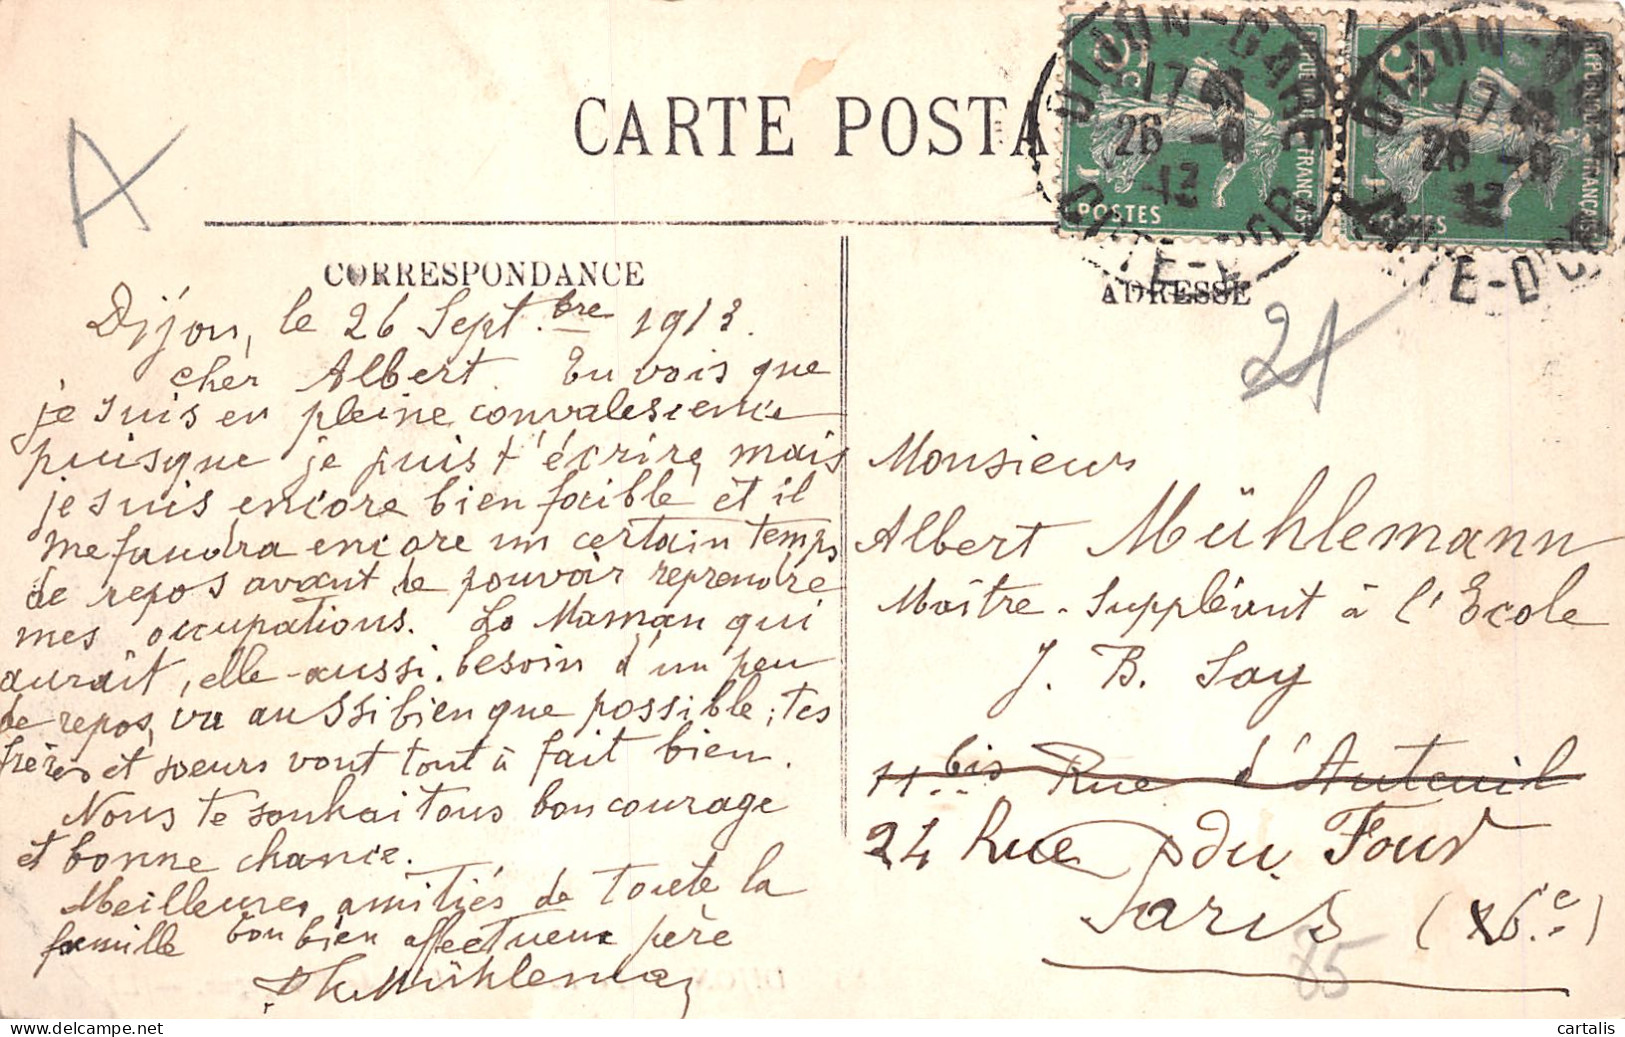 A
CARTE POSTA
DIJON-GARE
17
26 -9
13
CÔTE-D'OR
5c
REPUBLIQUE FRANÇAISE
POSTES
DIJON-GARE
17
26 -9
5
REPUBLIQUE FRANÇAISE
POSTES
CORRESPONDANCE
ADRESSE
Dijon, le 26 Sept.bre 1913.
cher Albert. Tu vois que
je suis en pleine convalescence
puisque je puis t'écrire, mais
je suis encore bien faible et il
me faudra encore un certain temps
de repos avant de pouvoir reprendre
mes occupations. La Maman qui
aurait, elle-aussi, besoin d'un peu
de repos, va aussi bien que possible; tes
frères et soeurs vont tout à fait bien.
Nous te souhaitons bon courage
et bonne chance.
Meilleures amitiés de toute la
famille ton bien affectueux père
Mühleman
21
Monsieur
Albert Mühlemann
Maître-Suppléant à l'Ecole
J. B. Say
11 bis Rue d'Auteuil
24 Rue du Four
Paris (6e)
85
cartalis